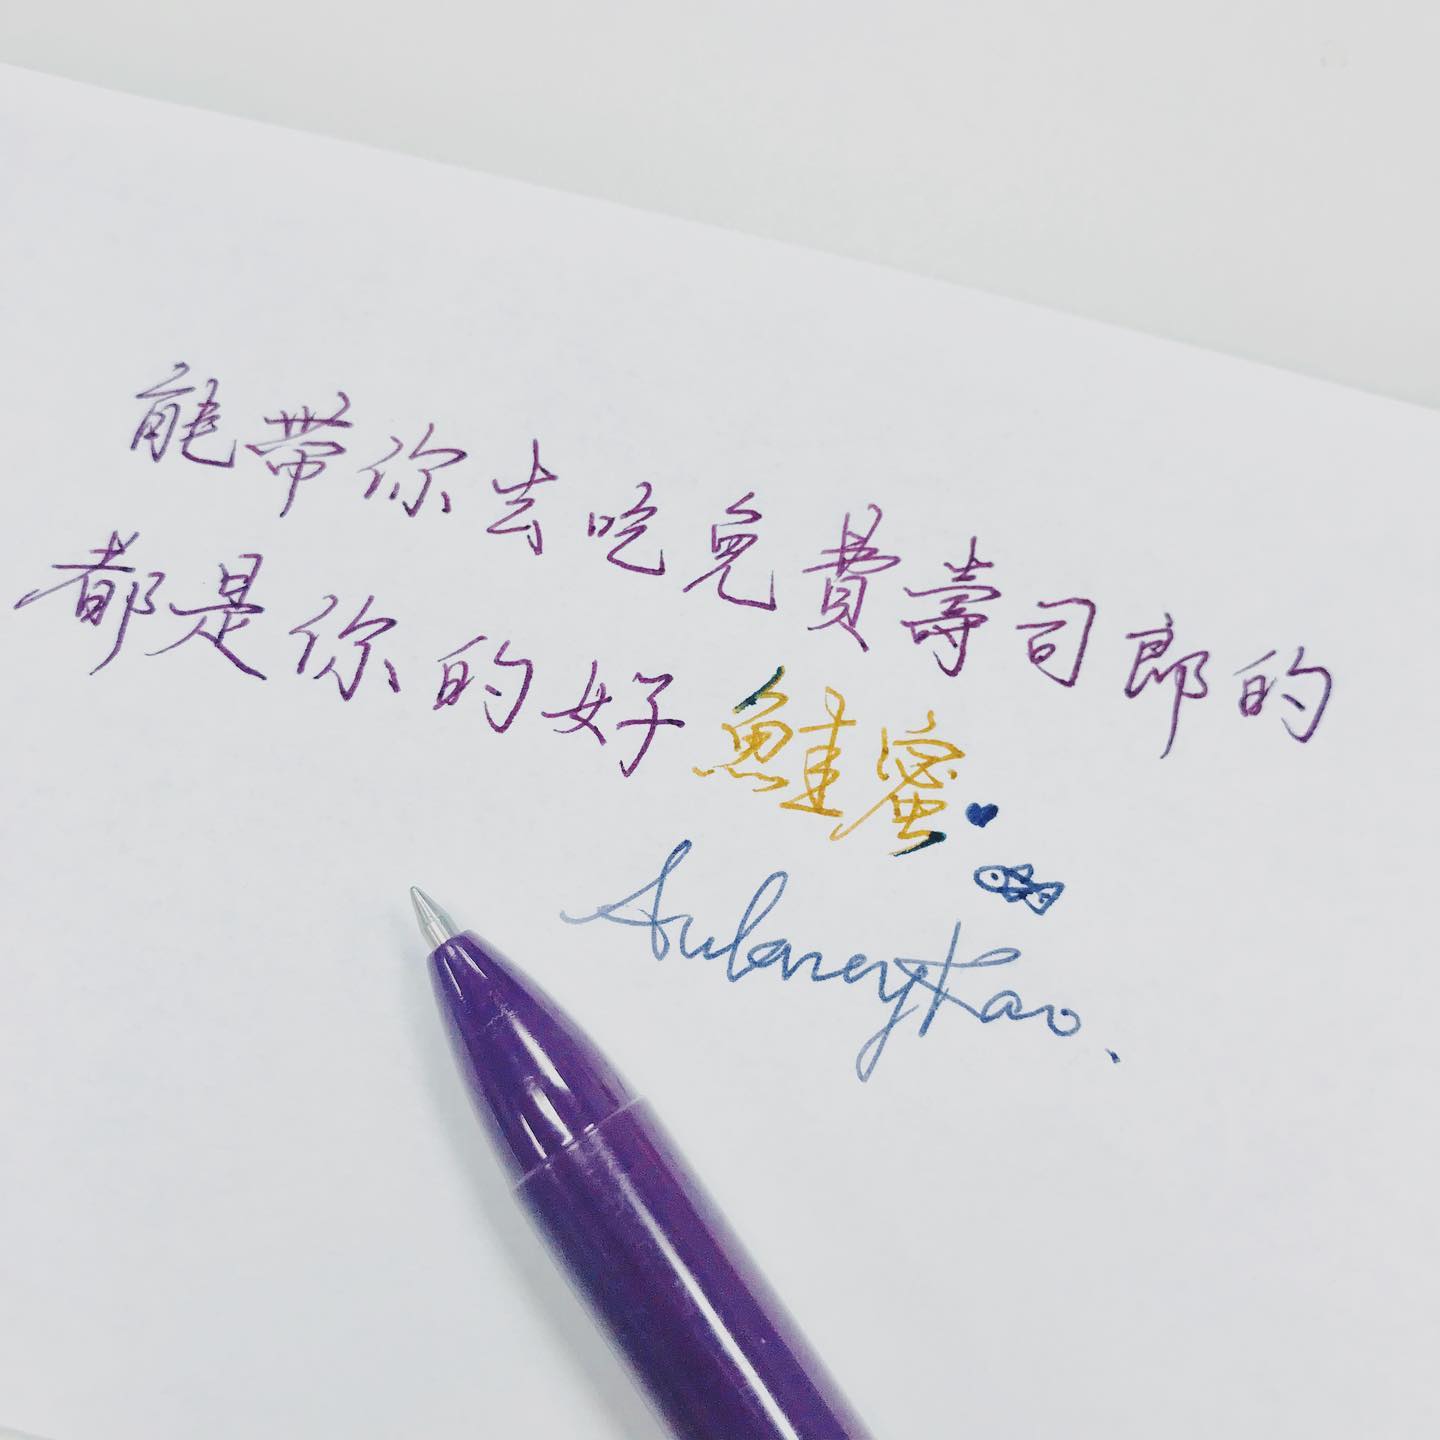 能帶你去吃免費壽司郎的
都是你的好鮭蜜
Aubrey Kao.